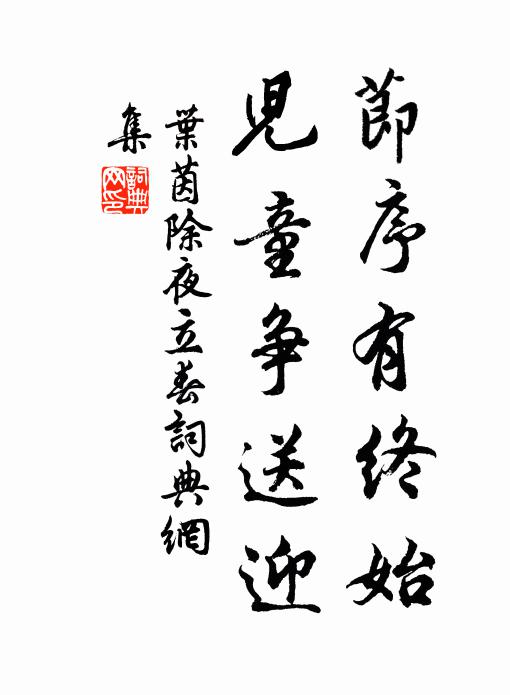 節序有終始
兒童争送迎
葉茵除夜立春詞典網
集
詞典网印